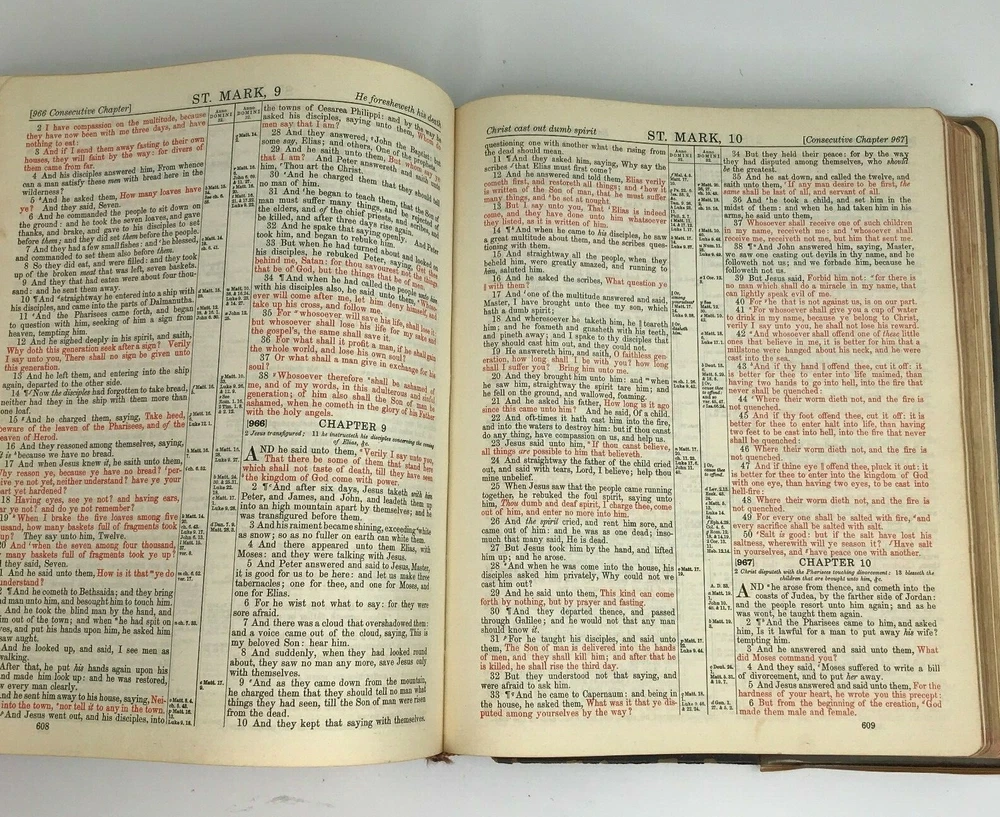 [966 Consecutive Chapter]
ST. MARK, 9
He foresheweth his death
2 I have compassion on the multitude, because
they have now been with me three days, and have
nothing to eat:
3 And if I send them away fasting to their own
houses, they will faint by the way: for divers of
them came from far.
4 And his disciples answered him, From whence
can a man satisfy these men with bread here in the
wilderness?
5 And he asked them, How many loaves have
ye? And they said, Seven.
6 And he commanded the people to sit down on
the ground: and he took the seven loaves, and gave
thanks, and brake, and gave to his disciples to set
before them; and they did set them before the people.
7 And they had a few small fishes: and he blessed,
and commanded to set them also before them.
8 So they did eat, and were filled: and they took
up of the broken meat that was left, seven baskets.
9 And they that had eaten were about four thou-
sand: and he sent them away.
10 ¶ And straightway he entered into a ship with
his disciples, and came into the parts of Dalmanutha.
11 And the Pharisees came forth, and began
to question with him, seeking of him a sign from
heaven, tempting him.
12 And he sighed deeply in his spirit, and saith,
Why doth this generation seek after a sign? Verily
I say unto you, There shall no sign be given unto
this generation.
13 And he left them, and entering into the ship
again, departed to the other side.
14 ¶ Now the disciples had forgotten to take bread,
neither had they in the ship with them more than
one loaf.
15 And he charged them, saying, Take heed,
beware of the leaven of the Pharisees, and of the
leaven of Herod.
16 And they reasoned among themselves, saying,
It is because we have no bread.
17 And when Jesus knew it, he saith unto them,
Why reason ye, because ye have no bread? per-
ceive ye not yet, neither understand? have ye your
heart yet hardened?
18 Having eyes, see ye not? and having ears,
hear ye not? and do ye not remember?
19 When I brake the five loaves among five
thousand, how many baskets full of fragments took
up? They say unto him, Twelve.
20 And when the seven among four thousand,
many baskets full of fragments took ye up?
they said, Seven.
And he said unto them, How is it that ye do
understand?
¶ And he cometh to Bethsaida; and they bring
man unto him, and besought him to touch him.
And he took the blind man by the hand, and
him out of the town; and when he had spit on
eyes, and put his hands upon him, he asked him
saw aught.
And he looked up, and said, I see men as
walking.
After that, he put his hands again upon his
and made him look up: and he was restored,
every man clearly.
And he sent him away to his house, saying, Nei-
into the town, nor tell it to any in the town.
And Jesus went out, and his disciples, into
608
the towns of Cesarea Philippi: and by the way he
asked his disciples, saying unto them, Whom do
men say that I am?
28 And they answered, John the Baptist: but
some say, Elias; and others, One of the prophets.
29 And he saith unto them, But whom say ye
that I am? And Peter answereth and saith unto
him, Thou art the Christ.
30 And he charged them that they should tell
no man of him.
31 And he began to teach them, that the Son of
man must suffer many things, and be rejected of
the elders, and of the chief priests, and scribes, and
be killed, and after three days rise again.
32 And he spake that saying openly. And Peter
took him, and began to rebuke him.
33 But when he had turned about and looked on
his disciples, he rebuked Peter, saying, Get thee
behind me, Satan: for thou savourest not the things
that be of God, but the things that be of men.
34 ¶ And when he had called the people unto him,
with his disciples also, he said unto them, Whoso-
ever will come after me, let him deny himself, and
take up his cross, and follow me.
35 For whosoever will save his life, shall lose it;
but whosoever shall lose his life for my sake and
the gospel's, the same shall save it.
36 For what shall it profit a man, if he shall gain
the whole world, and lose his own soul?
37 Or what shall a man give in exchange for his
soul?
38 Whosoever therefore shall be ashamed of
me, and of my words, in this adulterous and sinful
generation; of him also shall the Son of man be
ashamed, when he cometh in the glory of his Father
with the holy angels.
[966]
CHAPTER 9
2 Jesus transfigured; 11 he instructeth his disciples concerning the coming
of Elias, &c.
AND he said unto them, Verily I say unto you,
That there be some of them that stand here
which shall not taste of death, till they have seen
the kingdom of God come with power.
2 ¶ And after six days, Jesus taketh with him
Peter, and James, and John, and leadeth them up
into an high mountain apart by themselves; and he
was transfigured before them.
3 And his raiment became shining, exceeding white
as snow; so as no fuller on earth can white them.
4 And there appeared unto them Elias, with
Moses: and they were talking with Jesus.
5 And Peter answered and said to Jesus, Master,
it is good for us to be here: and let us make three
tabernacles; one for thee, and one for Moses, and
one for Elias.
6 For he wist not what to say: for they were
sore afraid.
7 And there was a cloud that overshadowed them:
and a voice came out of the cloud, saying, This is
my beloved Son: hear him.
8 And suddenly, when they had looked round
about, they saw no man any more, save Jesus only
with themselves.
9 And as they came down from the mountain,
he charged them that they should tell no man what
things they had seen, till the Son of man were risen
from the dead.
10 And they kept that saying with themselves,
Christ cast out dumb spirit
ST. MARK, 10
[Consecutive Chapter 967]
questioning one with another what the rising from
the dead should mean.
11 ¶ And they asked him, saying, Why say the
scribes that Elias must first come?
12 And he answered and told them, Elias verily
cometh first, and restoreth all things; and how it
is written of the Son of man, that he must suffer
many things, and be set at nought.
13 But I say unto you, That Elias is indeed
come, and they have done unto him whatsoever
they listed, as it is written of him.
14 ¶ And when he came to his disciples, he saw
a great multitude about them, and the scribes ques-
tioning with them.
15 And straightway all the people, when they
beheld him, were greatly amazed, and running to
him, saluted him.
16 And he asked the scribes, What question ye
with them?
17 And one of the multitude answered and said,
Master, I have brought unto thee my son, which
hath a dumb spirit;
18 And wheresoever he taketh him, he teareth
him; and he foameth and gnasheth with his teeth,
and pineth away; and I spake to thy disciples that
they should cast him out, and they could not.
19 He answereth him, and saith, O faithless gen-
eration, how long shall I be with you? how long
shall I suffer you? Bring him unto me.
20 And they brought him unto him: and when
he saw him, straightway the spirit tare him; and
he fell on the ground, and wallowed, foaming.
21 And he asked his father, How long is it ago
since this came unto him? And he said, Of a child.
22 And oft-times it hath cast him into the fire,
and into the waters to destroy him: but if thou canst
do any thing, have compassion on us, and help us.
23 Jesus said unto him, If thou canst believe,
all things are possible to him that believeth.
24 And straightway the father of the child cried
out, and said with tears, Lord, I believe; help thou
mine unbelief.
25 When Jesus saw that the people came running
together, he rebuked the foul spirit, saying unto
him, Thou dumb and deaf spirit, I charge thee, come
out of him, and enter no more into him.
26 And the spirit cried, and rent him sore, and
came out of him: and he was as one dead; inso-
much that many said, He is dead.
27 But Jesus took him by the hand, and lifted
him up; and he arose.
28 And when he was come into the house, his
disciples asked him privately, Why could not we
cast him out?
29 And he said unto them, This kind can come
forth by nothing, but by prayer and fasting.
30 ¶ And they departed thence, and passed
through Galilee; and he would not that any man
should know it.
31 For he taught his disciples, and said unto
them, The Son of man is delivered into the hands
of men, and they shall kill him; and after that he
is killed, he shall rise the third day.
32 But they understood not that saying, and
were afraid to ask him.
33 ¶ And he came to Capernaum: and being in
the house, he asked them, What was it that ye dis-
puted among yourselves by the way?
34 But they held their peace: for by the way
they had disputed among themselves, who should
be the greatest.
35 And he sat down, and called the twelve, and
saith unto them, If any man desire to be first, the
same shall be last of all, and servant of all.
36 And he took a child, and set him in the
midst of them: and when he had taken him in his
arms, he said unto them,
37 Whosoever shall receive one of such children
in my name, receiveth me: and whosoever shall
receive me, receiveth not me, but him that sent me.
38 ¶ And John answered him, saying, Master,
we saw one casting out devils in thy name, and he
followeth not us; and we forbade him, because he
followeth not us.
39 But Jesus said, Forbid him not: for there is
no man which shall do a miracle in my name, that
can lightly speak evil of me.
40 For he that is not against us, is on our part.
41 For whosoever shall give you a cup of water
to drink in my name, because ye belong to Christ,
verily I say unto you, he shall not lose his reward.
42 And whosoever shall offend one of these little
ones that believe in me, it is better for him that a
millstone were hanged about his neck, and he were
cast into the sea.
43 And if thy hand offend thee, cut it off: it
is better for thee to enter into life maimed, than
having two hands to go into hell, into the fire that
never shall be quenched:
44 Where their worm dieth not, and the fire is
not quenched.
45 And if thy foot offend thee, cut it off: it is
better for thee to enter halt into life, than having
two feet to be cast into hell, into the fire that never
shall be quenched:
46 Where their worm dieth not, and the fire is
not quenched.
47 And if thine eye offend thee, pluck it out: it
is better for thee to enter into the kingdom of God
with one eye, than having two eyes, to be cast into
hell-fire:
48 Where their worm dieth not, and the fire is
not quenched.
49 For every one shall be salted with fire, and
every sacrifice shall be salted with salt.
50 Salt is good: but if the salt have lost his
saltness, wherewith will ye season it? Have salt
in yourselves, and have peace one with another.
[967]
CHAPTER 10
2 Christ disputeth with the Pharisees touching divorcement: 13 blesseth the
children that are brought unto him, &c.
AND he arose from thence, and cometh into the
coasts of Judea, by the farther side of Jordan:
and the people resort unto him again; and as he
was wont, he taught them again.
2 ¶ And the Pharisees came to him, and asked
him, Is it lawful for a man to put away his wife?
tempting him.
3 And he answered and said unto them, What
did Moses command you?
4 And they said, Moses suffered to write a bill
of divorcement, and to put her away.
5 And Jesus answered and said unto them, For the
hardness of your heart, he wrote you this precept:
6 But from the beginning of the creation, God
made them male and female.
609